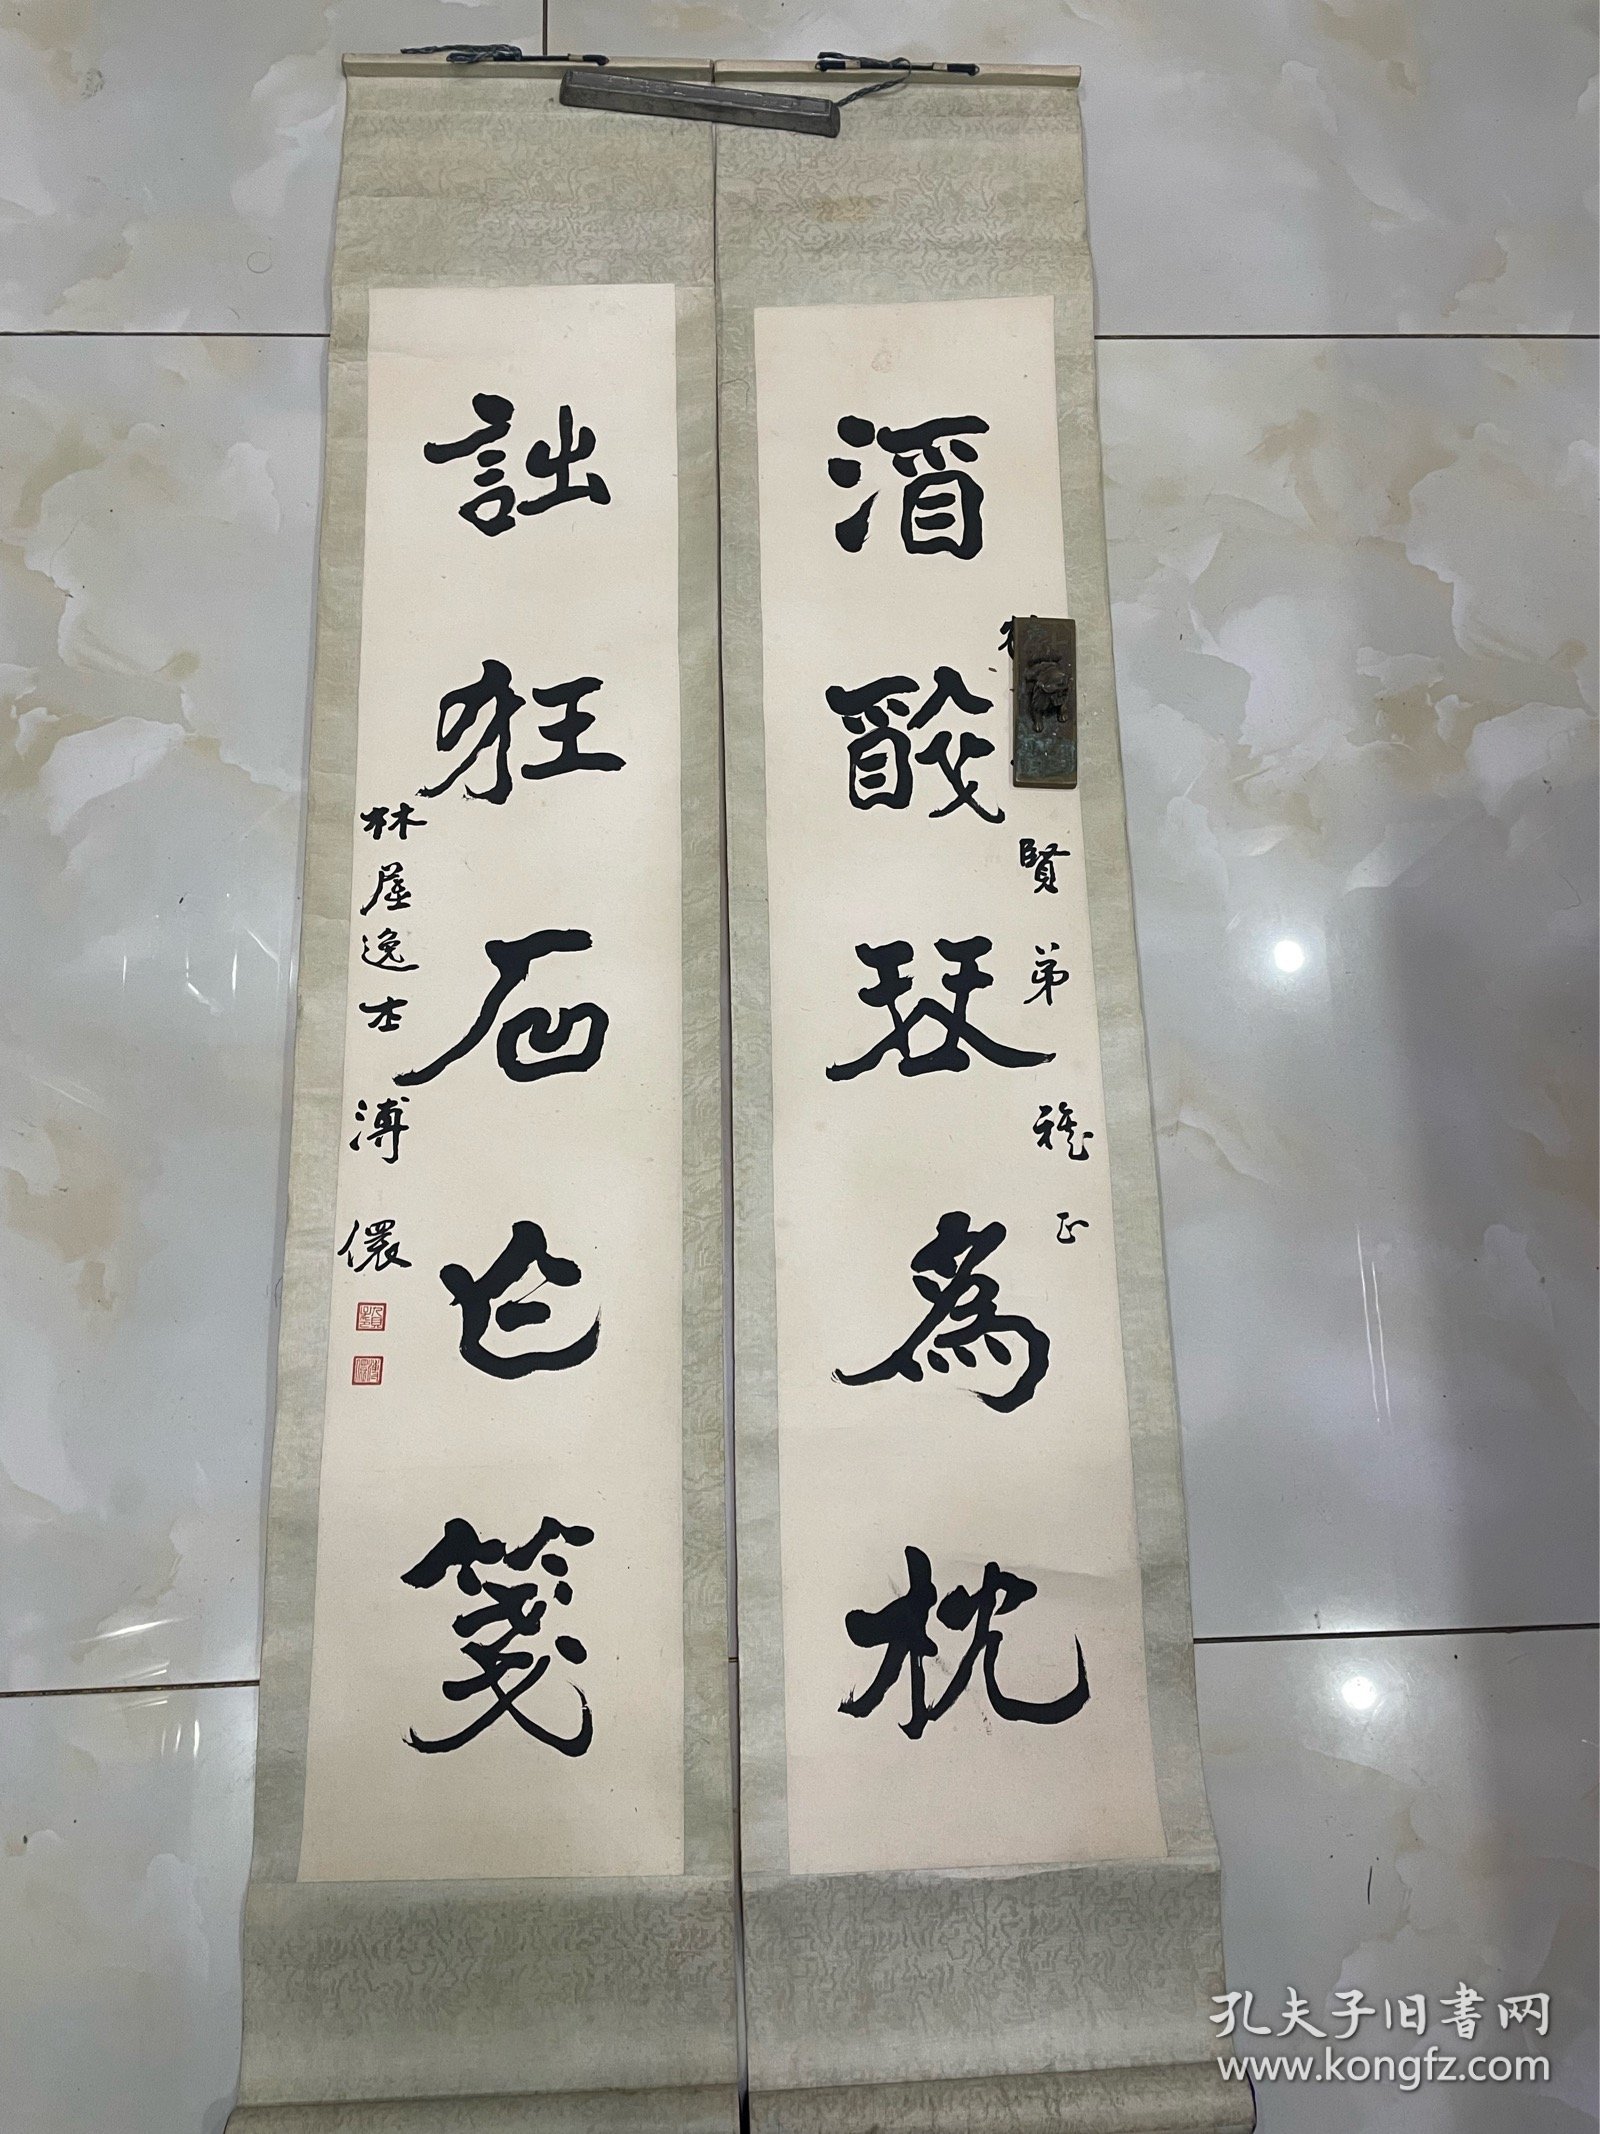 酒琴為枕
賢弟雅正
詩狂石作箋
林屋逸士溥儇
孔夫子旧書网
www.kongfz.com